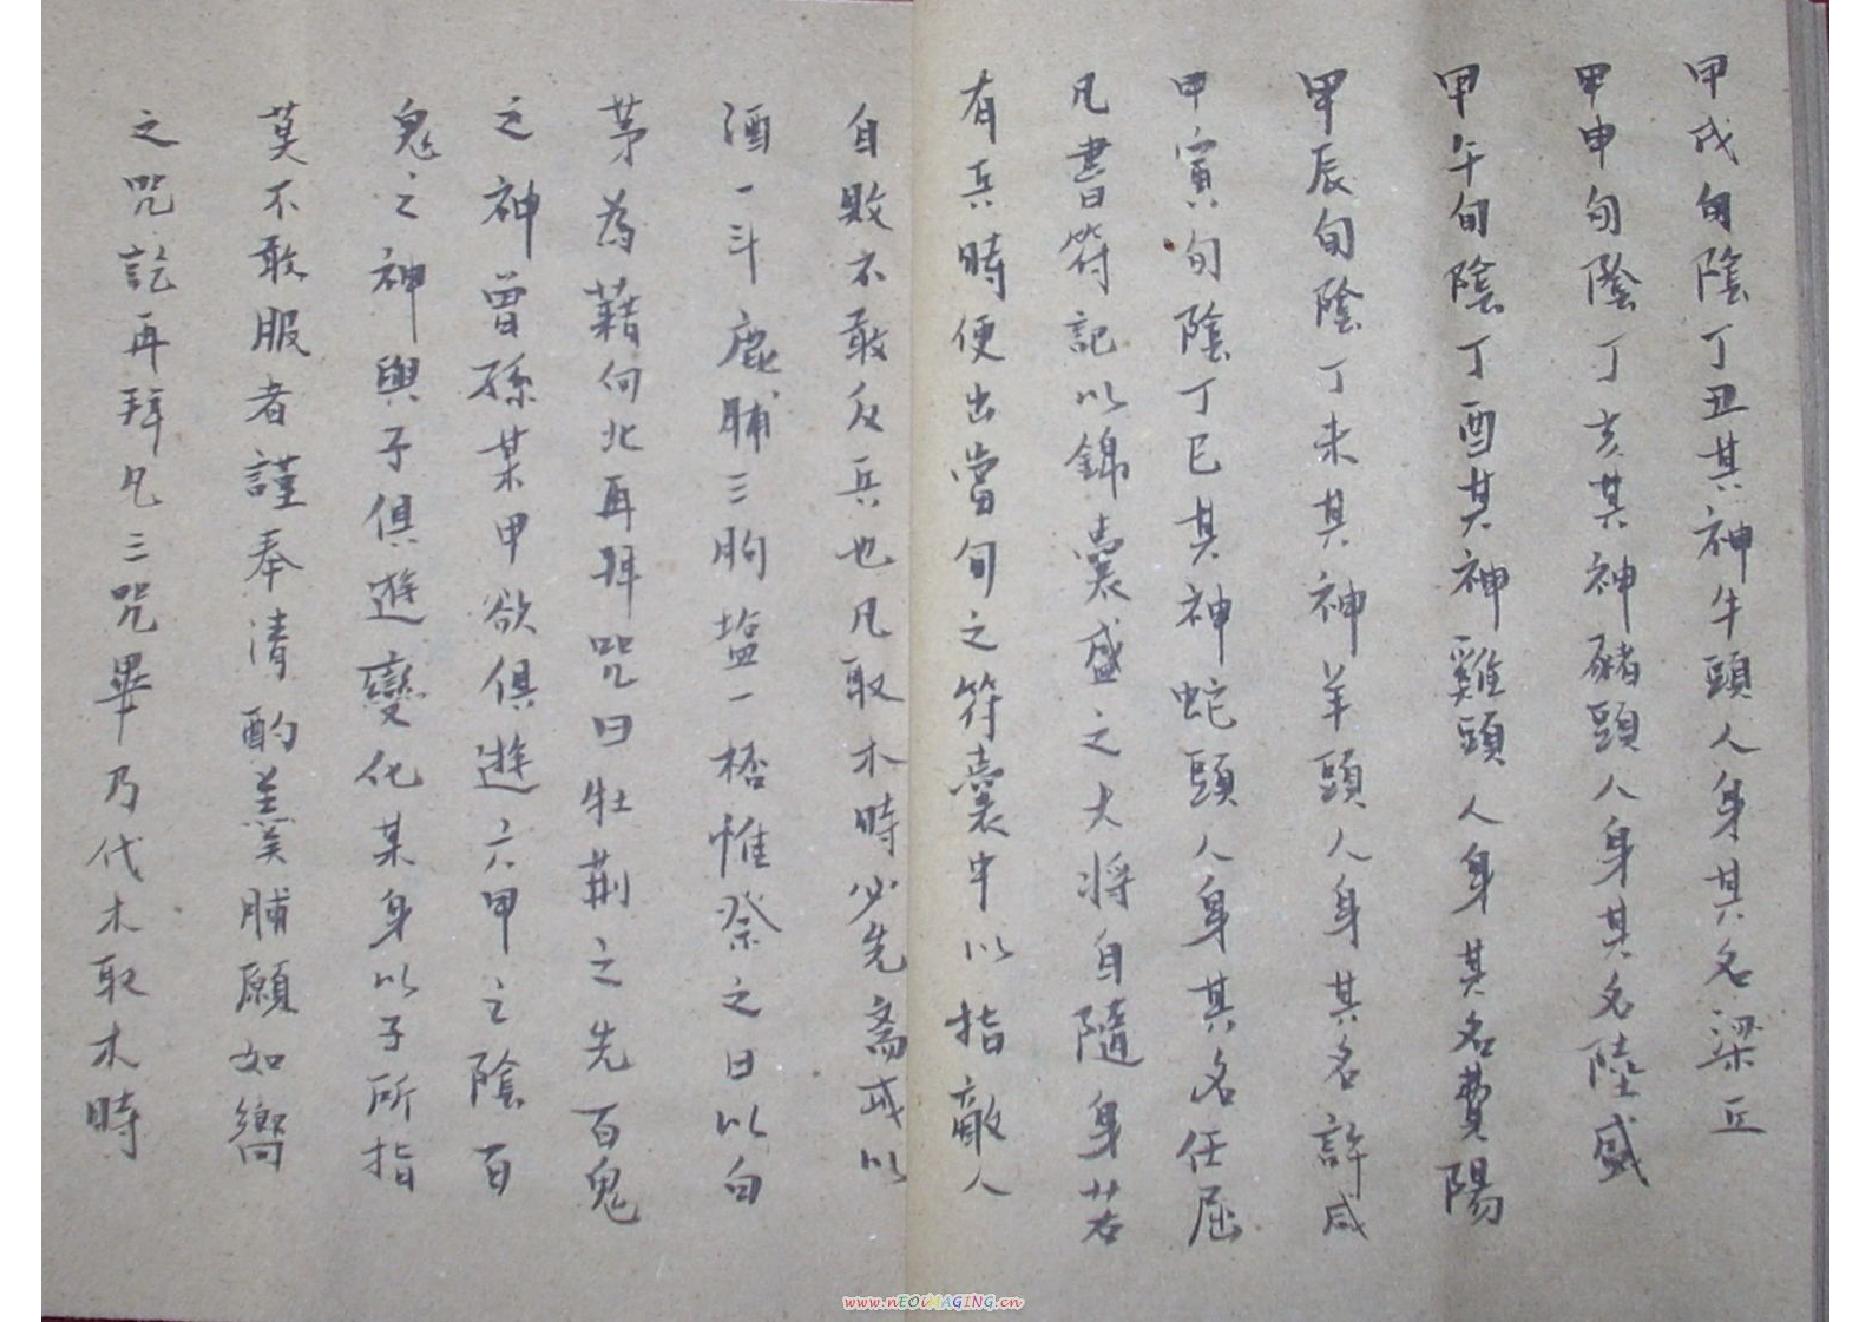 甲戌旬陰丁丑其神牛頭人身其名梁丘
甲申旬陰丁亥其神豬頭人身其名陸盛
甲午旬陰丁酉其神雞頭人身其名費陽
甲辰旬陰丁未其神羊頭人身其名許咸
甲寅旬陰丁巳其神蛇頭人身其名任屈
凡書符記以錦囊盛之大將自隨身若
有兵時便出當旬之符囊中以指敵人
自敗不敢反兵也凡取木時必先齋戒以
酒一斗鹿脯三朐塩一桮惟祭之日以白
茅為藉向北再拜咒曰牡荆之先百鬼
之神曾孫某甲欲俱遊六甲之陰百
鬼之神與子俱遊變化某身以子所指
莫不敢服者謹奉清酌羹脯願如嚮
之咒訖再拜凡三咒畢乃代木取木時
www.nEOiMAGING.cn